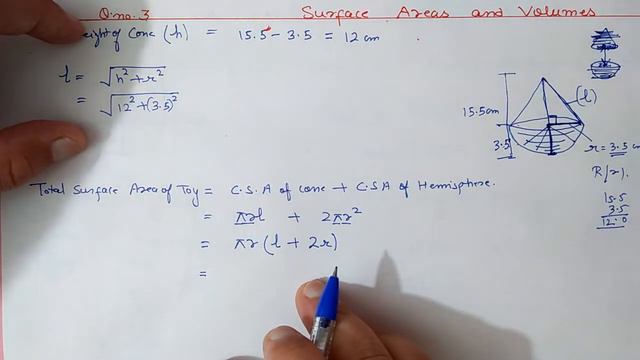 Q.no. 3 Surface Areas and Volumes
eight of Cone (h) = 15.5 - 3.5 = 12 cm
l = √h² + r²
= √12² + (3.5)²
(l)
15.5cm
3.5
r = 3.5 c
R/r).
15.5
3.5
12.0
Total Surface Area of Toy = C.S.A of cone + C.S.A of Hemisphere.
= πrl + 2πr²
= πr (l + 2r)
=